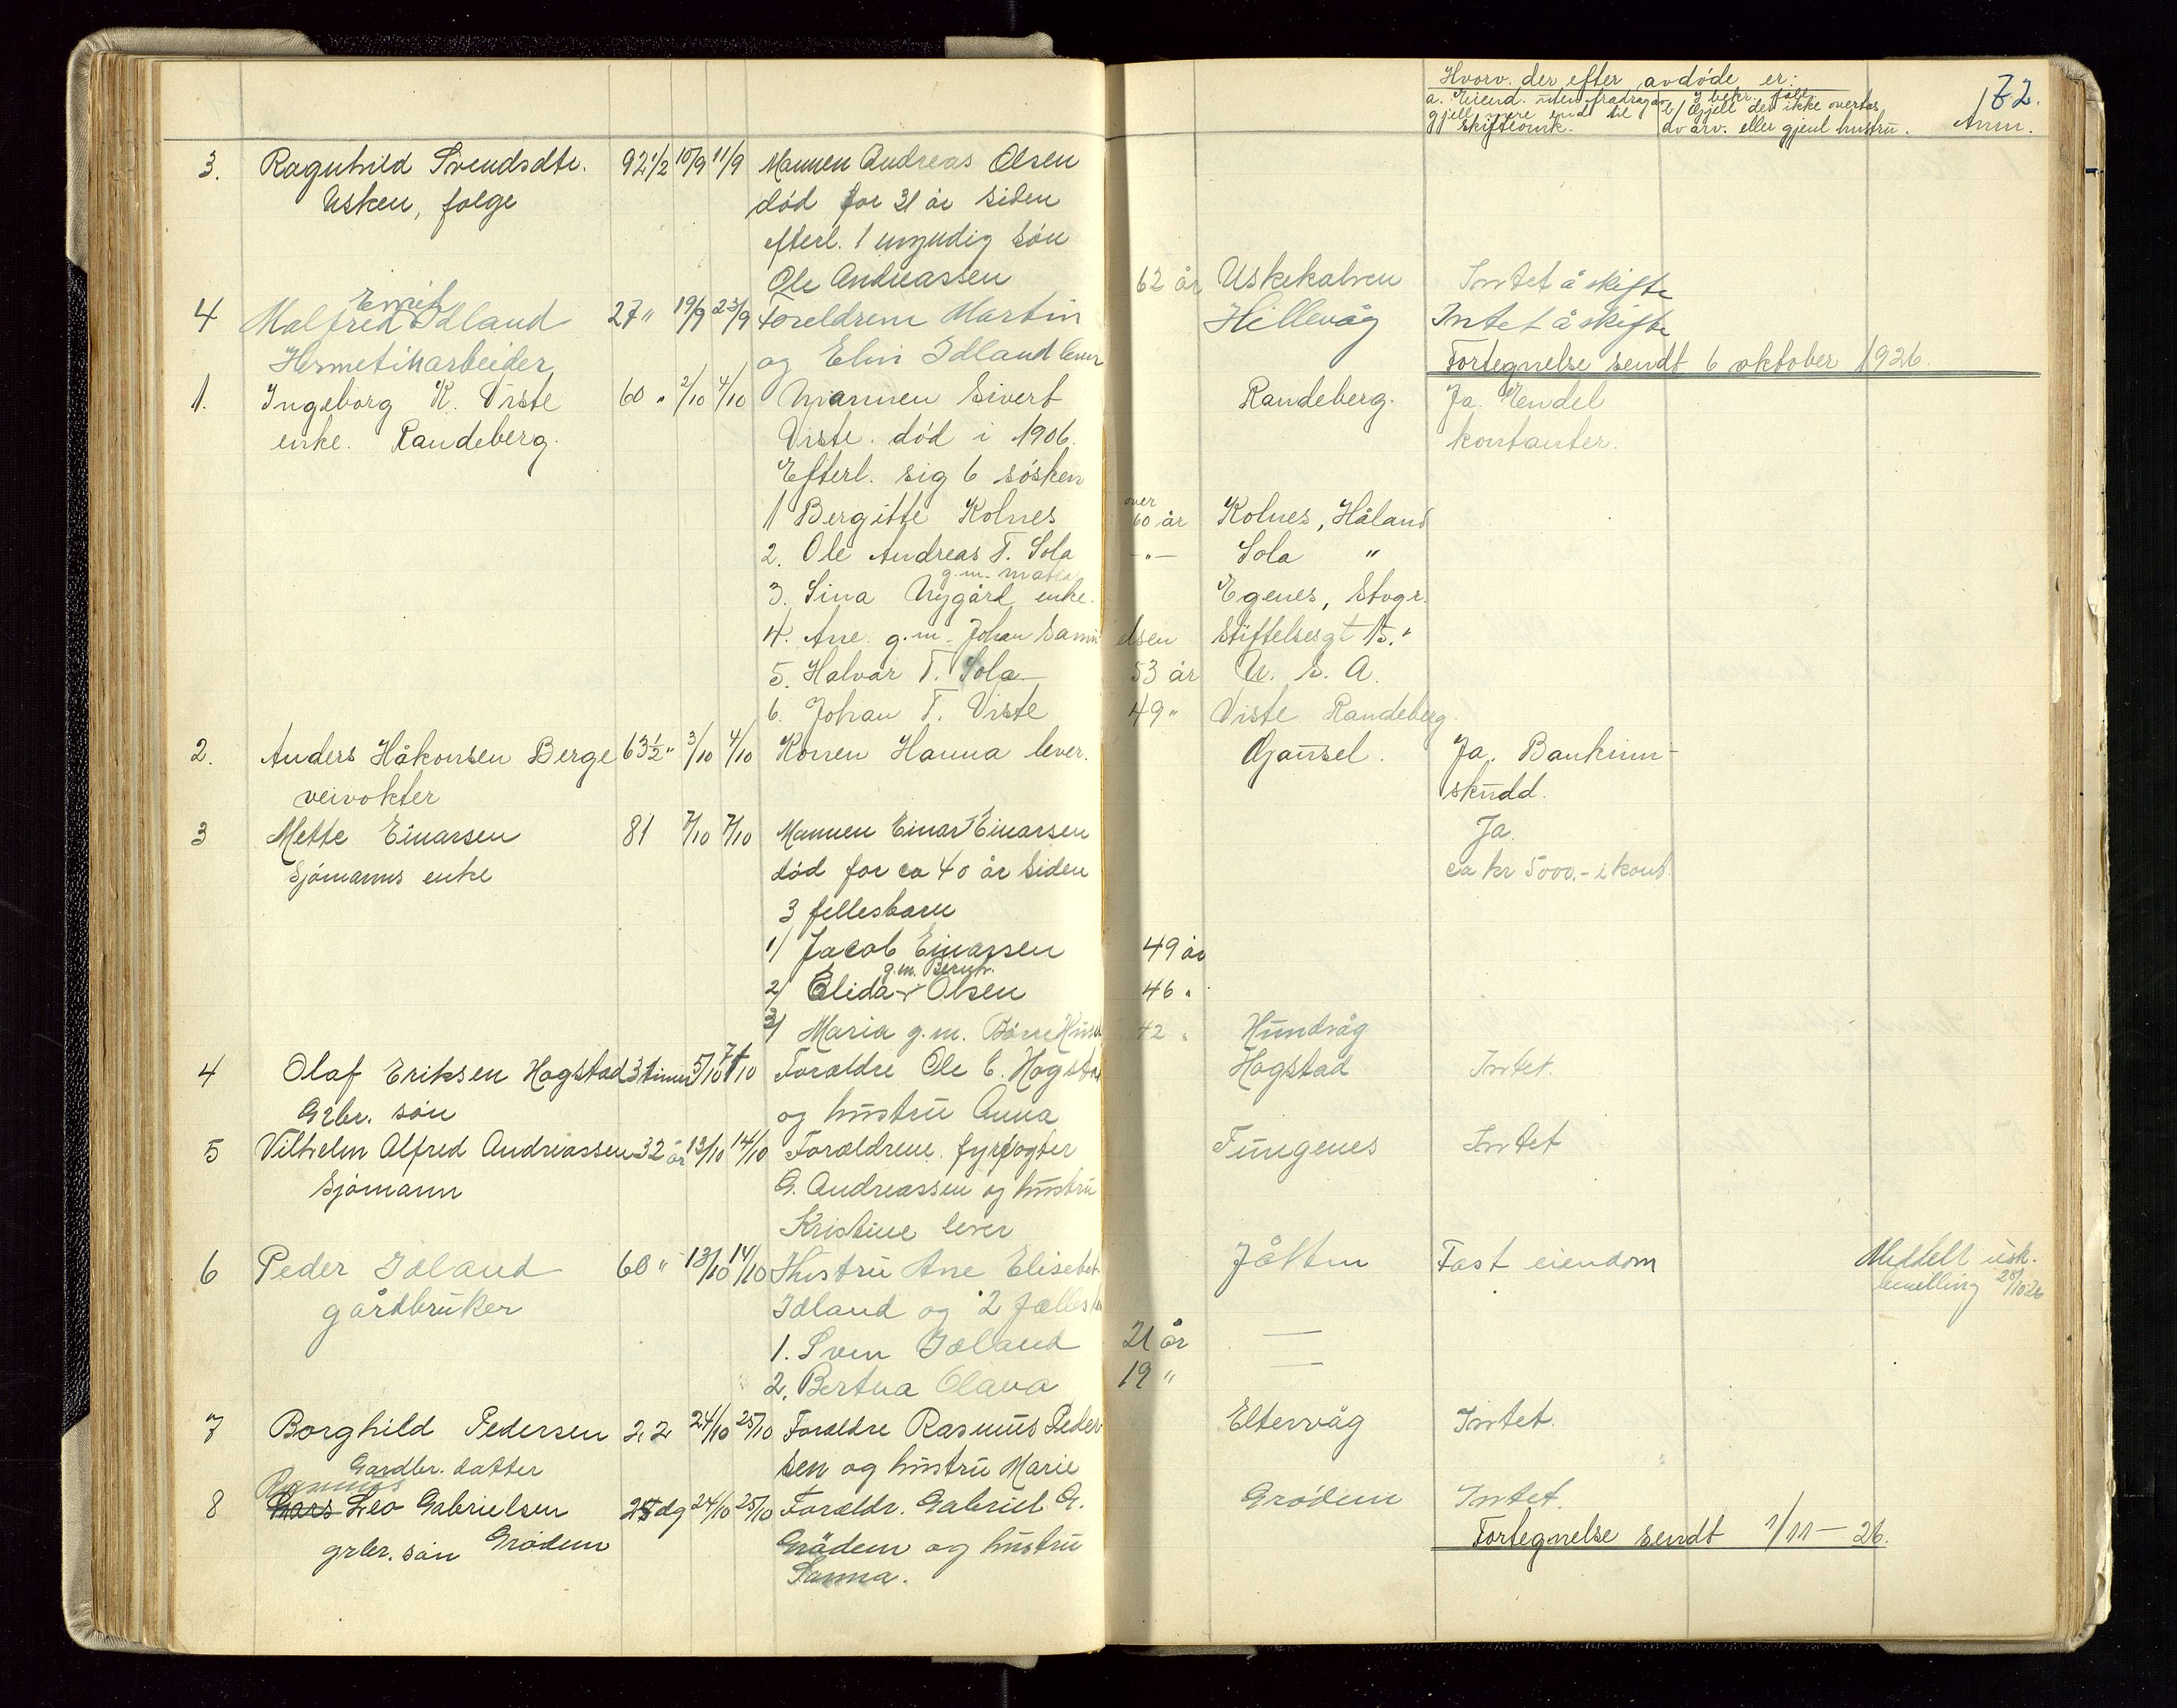 Hvorv. der efter avdöde er:
172.
a. Eiend. uten fradrag av
gjell mere end til
skifteomk.
I bekr. fall:
b/ Gjell der ikke overtas
av arv. eller gjenl hustru.
Anm.
3. Ragnhild Svendsdtr. 92 1/2 10/9 11/9 Mannen Andreas Olsen
Usken, følge død for 31 år siden
efterl. 1 umyndig søn
Ole Andreassen 62 år Uskekalven Intet å skifte
Emil
4 Malfred Idland 27 " 19/9 23/9 Foreldrene Martin Hillevåg Intet å skifte
Hermetikarbeider og Elin Idland lever Fortegnelse sendt 6 oktober 1926.
1. Ingeborg K. Viste 60 " 2/10 4/10 Mannen Sivert Randeberg. Ja. Endel
enke. Randeberg. Viste. död i 1906. kontanter.
Efterl. sig 6 sösken
1 Bergitte Kolnes over 60 år Kolnes, Håland
2. Ole Andreas T. Sola —"— Sola "
g.m. Matias
3. Sina Nygård enke. Egenes, Stvgr.
4. Ane g.m. Johan Samuelsen Stiftelsesgt 15. "
5. Halvar T. Sola 53 år U. S. A.
6. Johan T. Viste 49 " Viste Randeberg.
2. Anders Håkonsen Berge 63 1/2 " 3/10 4/10 Konen Hanna lever. Gausel. Ja. Bankinn-
veivokter skudd.
3 Mette Einarsen 81 7/10 7/10 Mannen Einar Einarsen Ja.
Sjömanns enke död for ca 40 år siden ca kr 5000.- i kont.
3 fellesbarn
1/ Jacob Einarsen 49 år
g.m. Berntr.
2/ Elida Olsen 46 "
3/ Maria g.m. Börre 42 " Hundvåg
4 Olaf Eriksen Hogstad 3 timer 5/10 7/10 Foraldre Ole E. Hogstad Hogstad Intet.
Grbr. sön og hustru Anna
5 Vilhelm Alfred Andreassen 32 år 13/10 14/10 Foraldrene. fyrvogter Tungenes Intet
Sjömann G. Andreassen og hustru
Kristine lever
6 Peder Idland 60 " 13/10 14/10 Hustru Ane Elisebet Jåtten Fast eiendom Meddelt usk.
gårdbruker Idland og 2 fælles bevilling 28/10 26
1. Sven Idland 21 år —
2. Bertha Olava 19 " —
7 Borghild Pedersen 22 24/10 25/10 Foraldre Rasmus Peder- Eltervåg Intet.
Gardbr. datter sen og hustru Marie
Rasmus
8 Lars Leo Gabrielsen dg 24/10 25/10 Foraldr. Gabriel G. Grödem Intet.
grbr. sön Grödem Grödem og hustru Fortegnelse sendt 1/11 — 26.
Sanna.